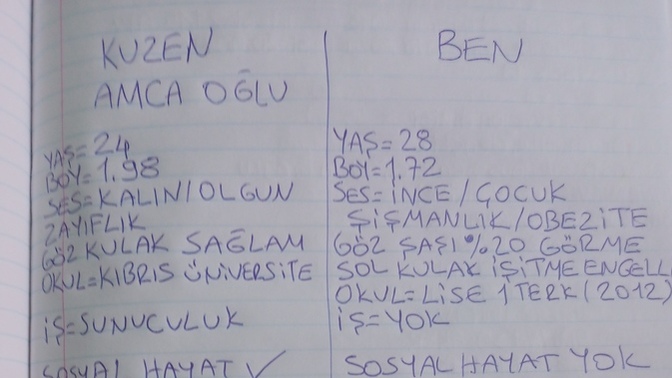 KUZEN
AMCA OĞLU
YAŞ=24
BOY=1.98
SES=KALIN/OLGUN
ZAYIFLIK
GÖZ KULAK SAĞLAM
OKUL=KIBRIS ÜNİVERSİTE
İŞ=SUNUCULUK
SOSYAL HAYAT ✓
BEN
YAŞ=28
BOY=1.72
SES=İNCE/ÇOCUK
ŞİŞMANLIK/OBEZİTE
GÖZ ŞAŞI %20 GÖRME
SOL KULAK İŞİTME ENGELL
OKUL=LİSE 1 TERK (2012)
İŞ=YOK
SOSYAL HAYAT YOK